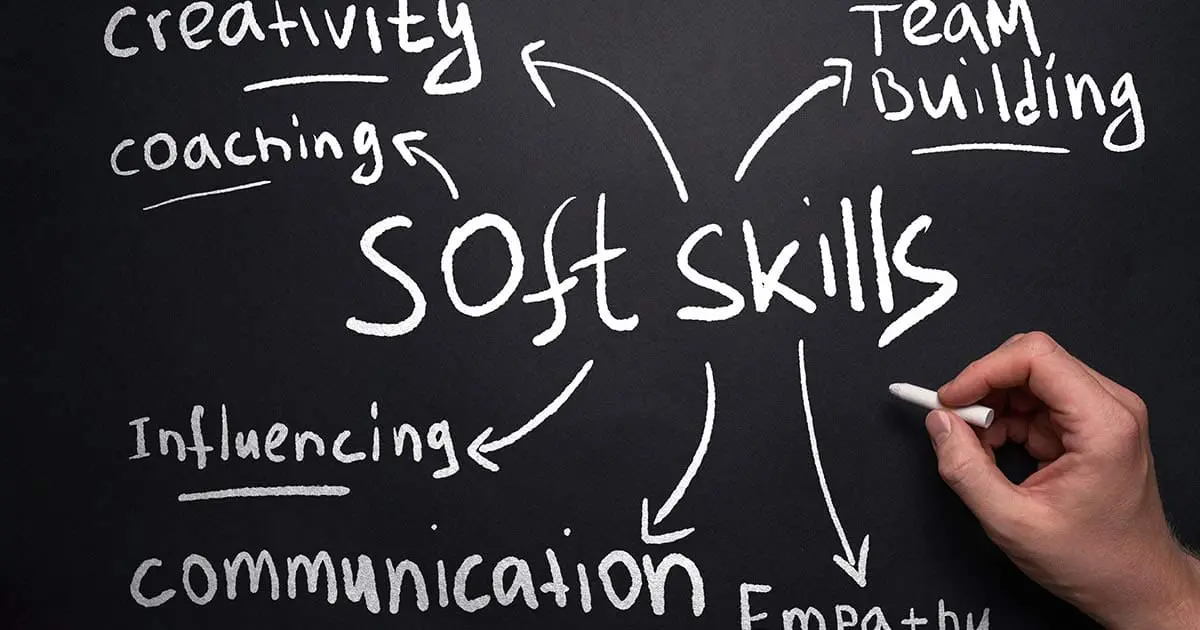 creativity
Team
Building
coaching
Soft Skills
Influencing
communication
Empathy